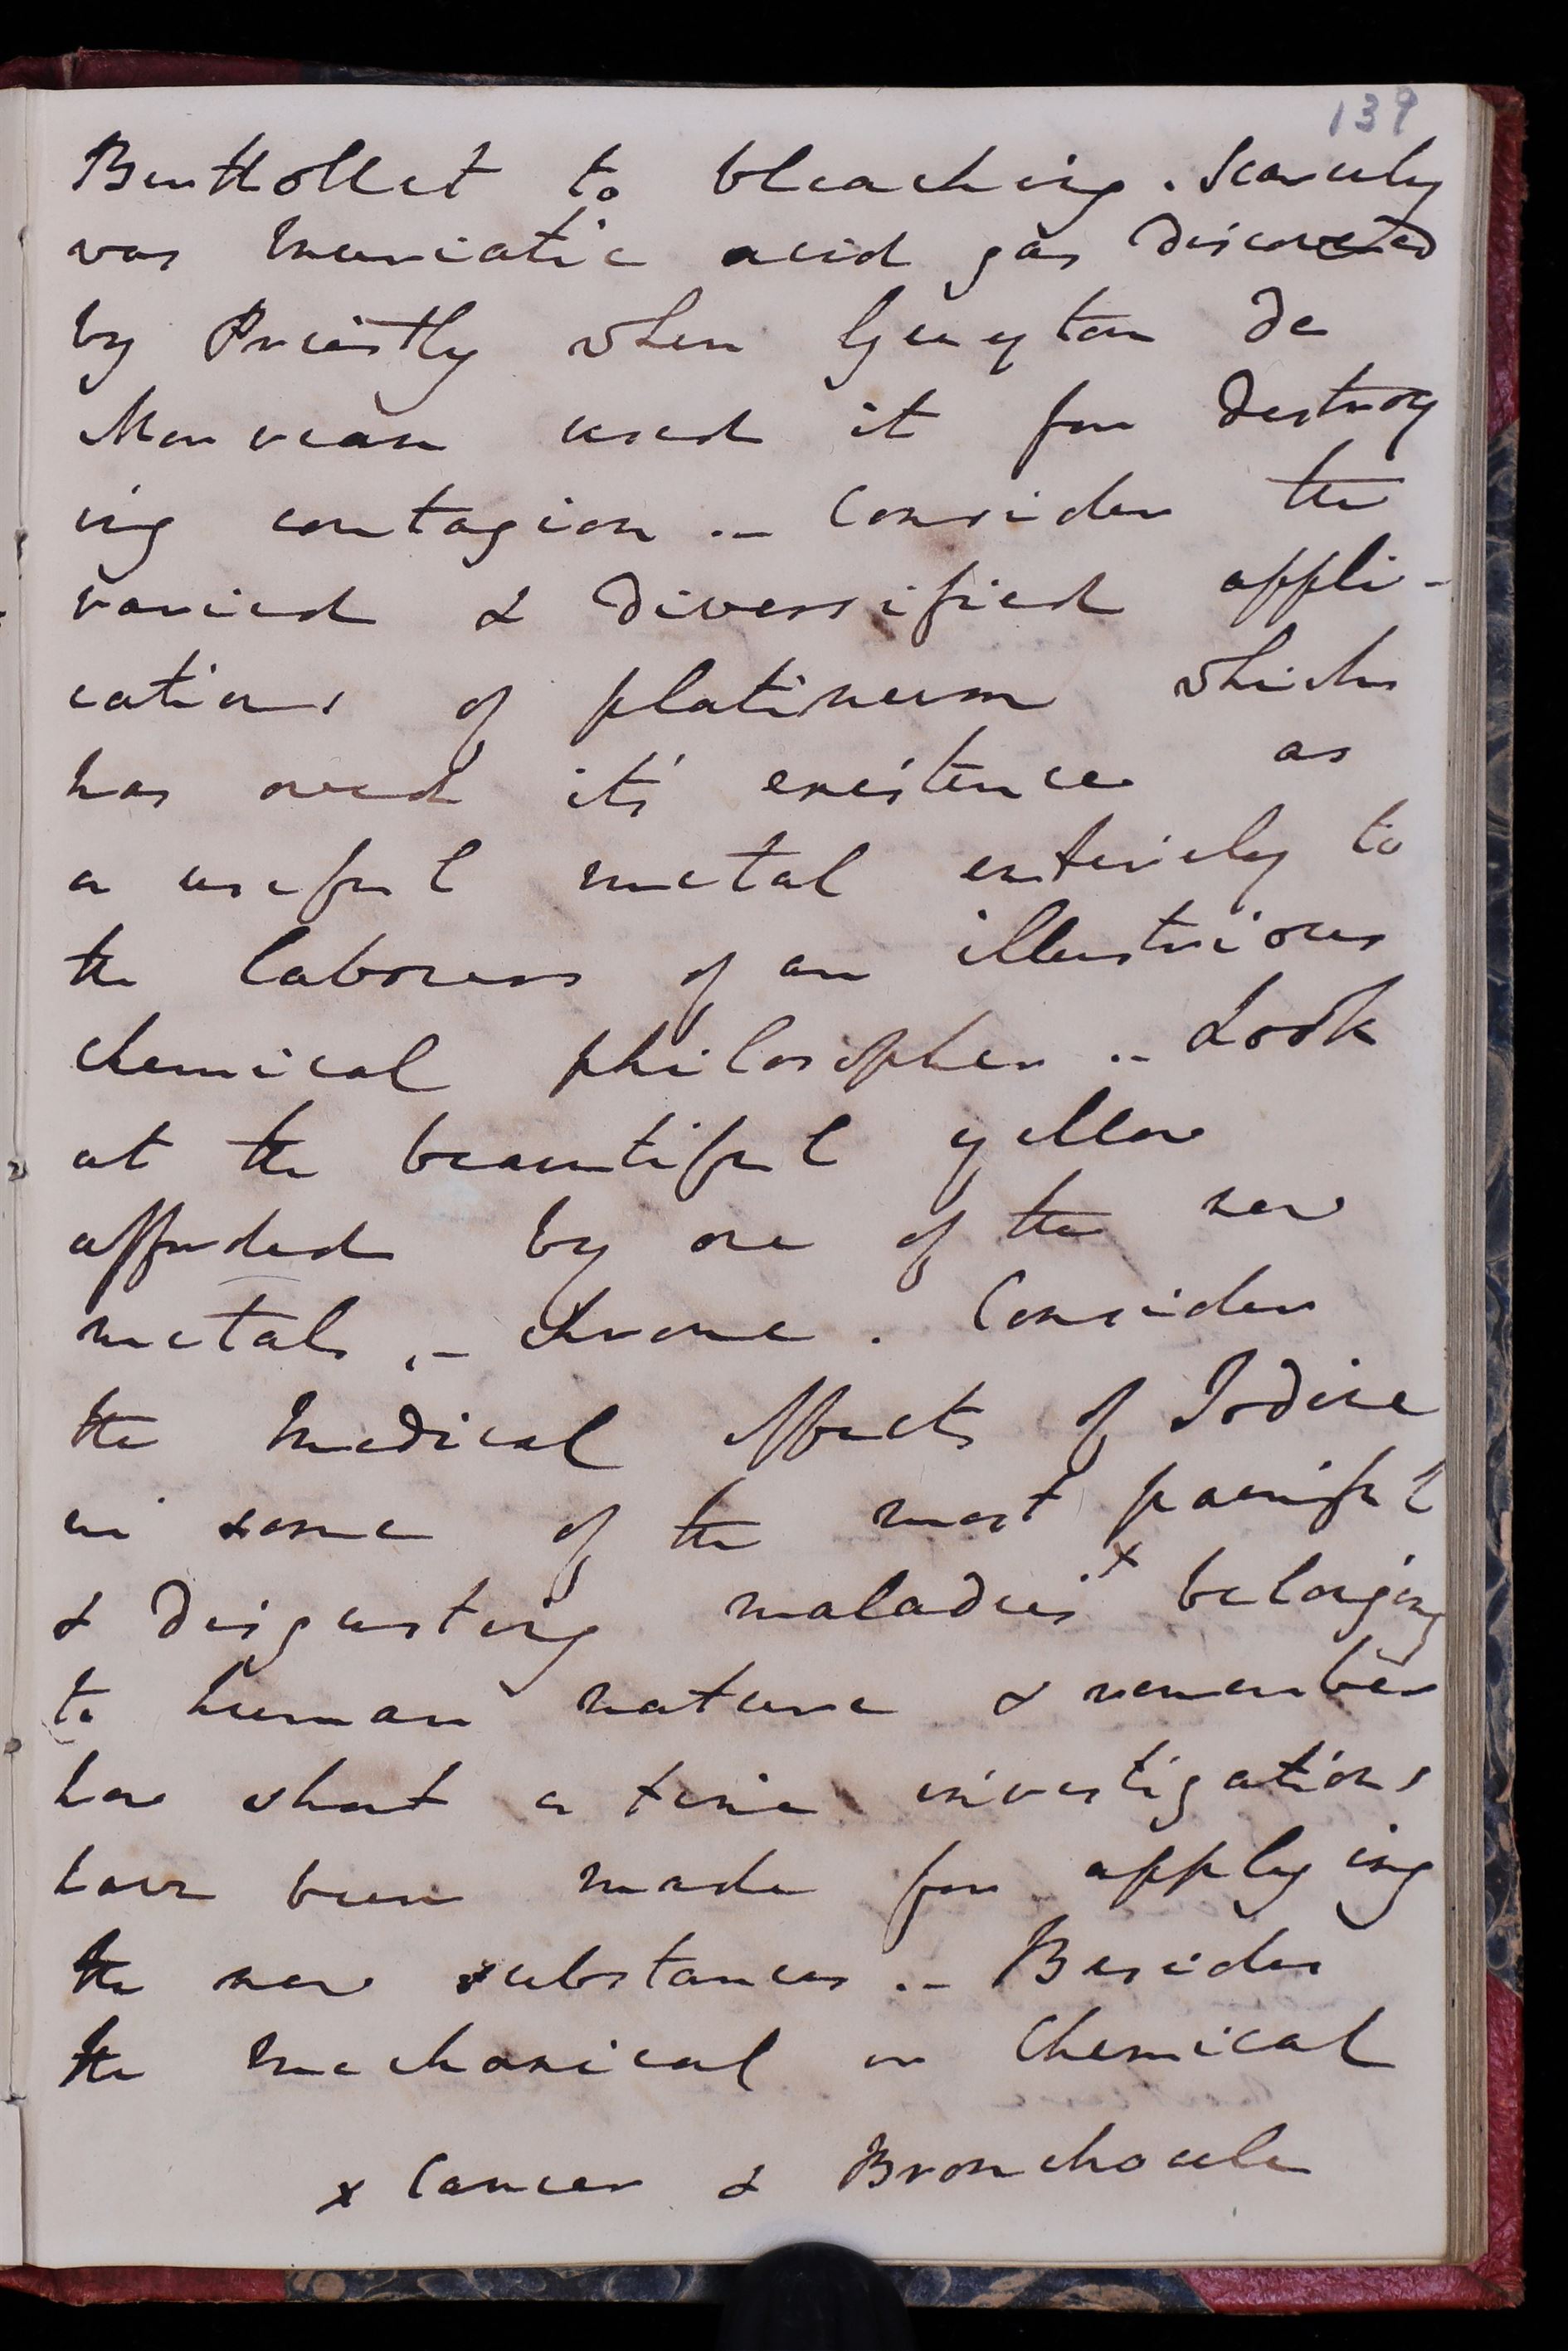 139
Berthollet to bleaching. Scarcely
was muriatic acid gas discovered
by Priestly when Guyton de
Morveau used it for destroy
ing contagion .– Consider the
varied & diversified appli-
cations of platinum which
has owed it's existence as
a useful metal entirely to
the labours of an illustrious
chemical philosopher .– Look
at the beautiful yellow
afforded by one of the new
metals .– Chrome . Consider
the medical effects of Iodine
in some of the most painful
& disgusting maladies x belonging
to human nature & remember
how short a time investigations
have been made for applying
the new substances .– Besides
the mechanical or chemical
x Cancer & Bronchocele